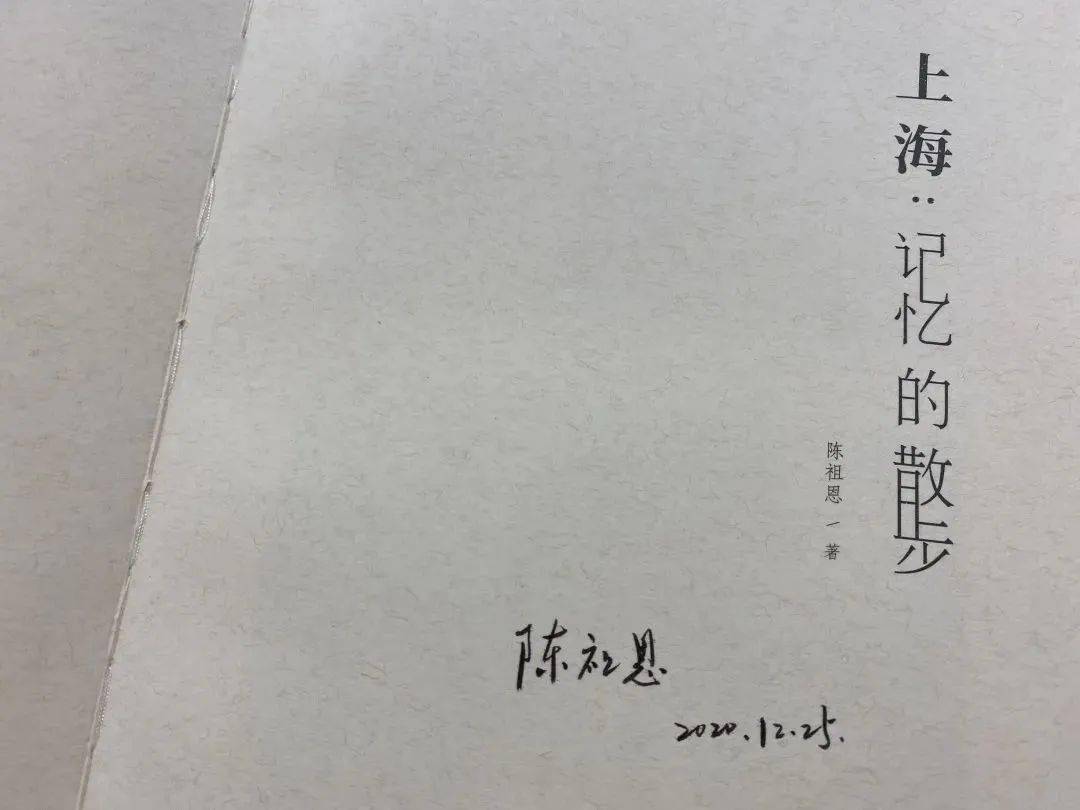 上海：记忆的散步
陈祖恩/著
陈祖恩
2020.12.25.